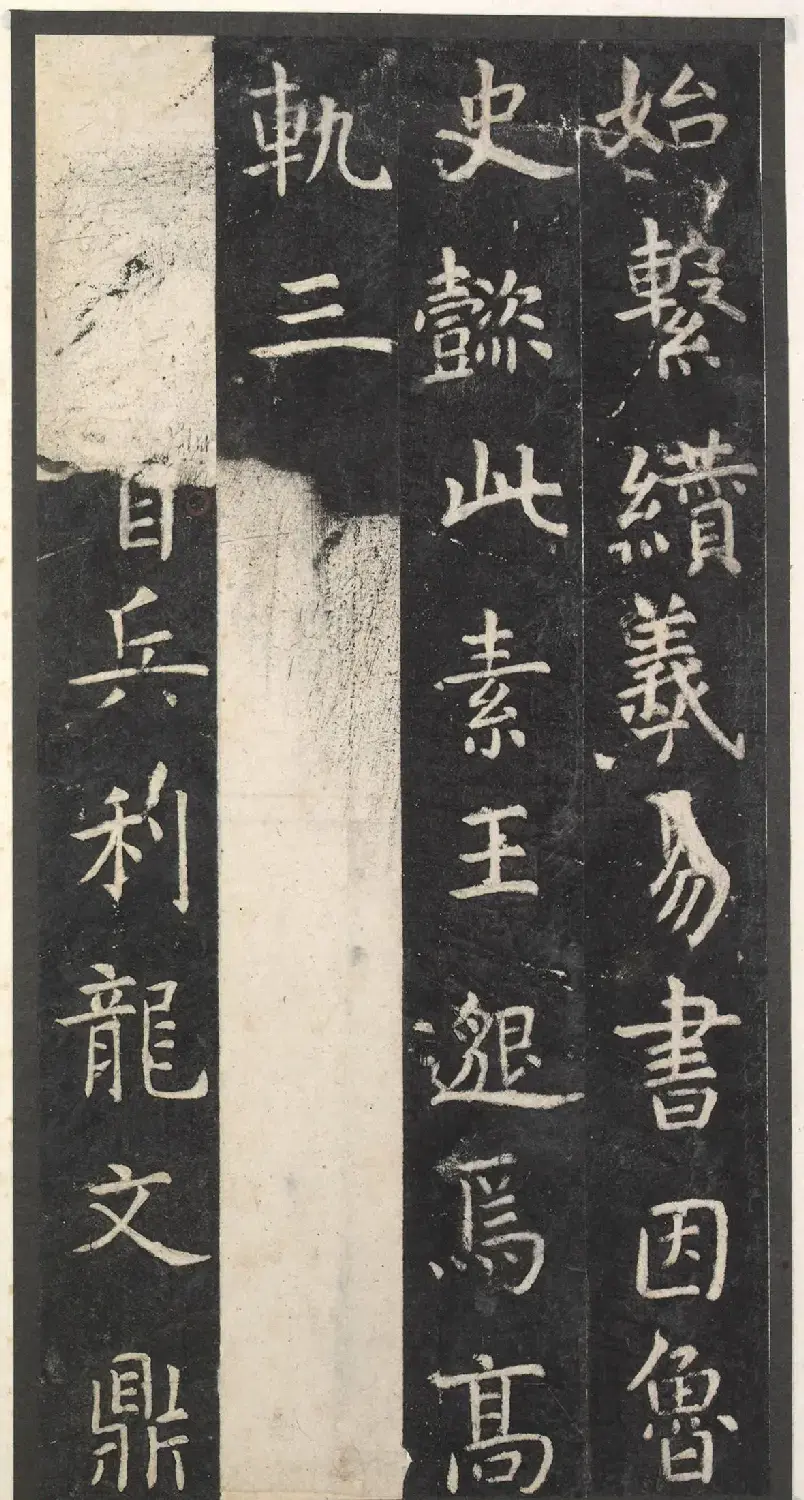 始繫纘羲易書因魯
史懿此素王邈焉高
軌三
自兵利龍文鼎